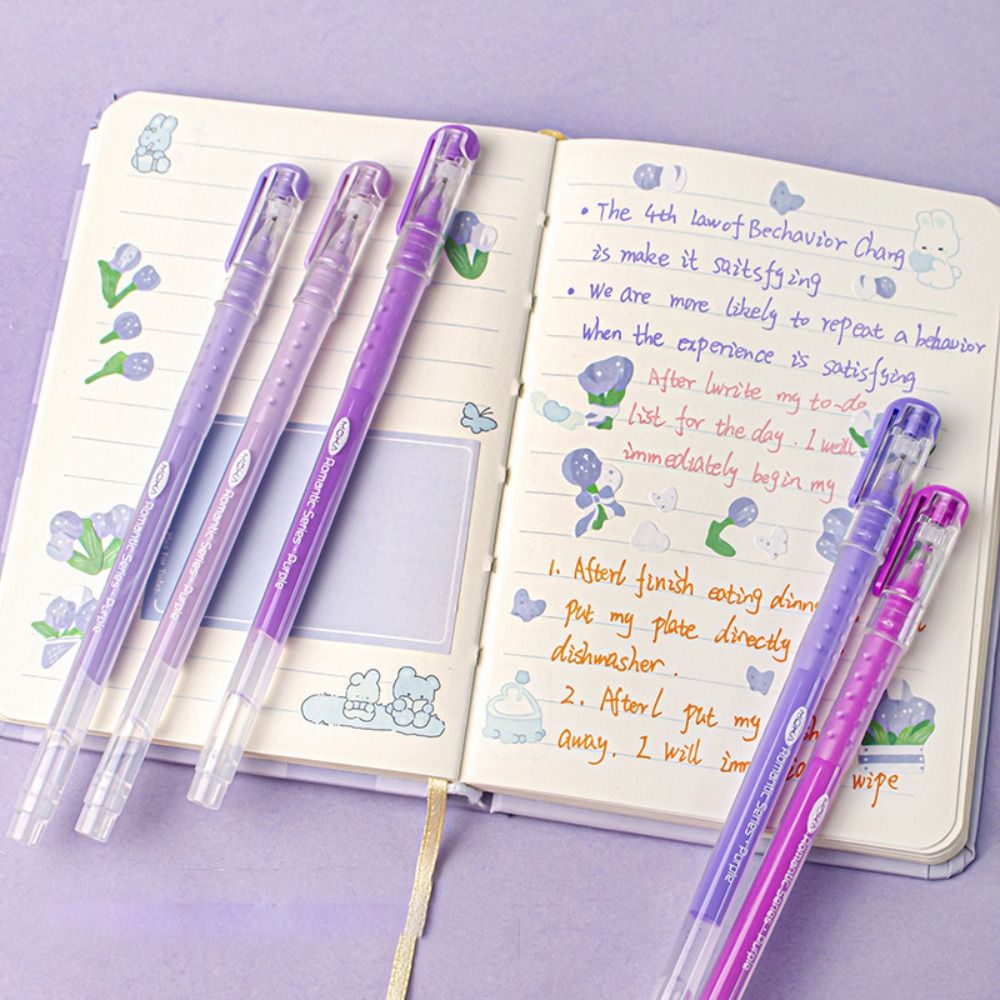 MOKA Romantic Series · Purple
MOKA Romantic Series · Purple
MOKA Romantic Series · Purple
• The 4th Law of Bechavior Chang
is make it saitsfying
• We are more likely to repeat a behavior
when the experience is satisfying
After lwrite my to-do
list for the day. I well
immediately begin my
1. Afterl finish eating dinn
put my plate dinectly
dishwasher.
2. Afterl put my
away, I will imm
wipe
MOKA Romantic Series · Purple
MOKA Romantic Series · Purple